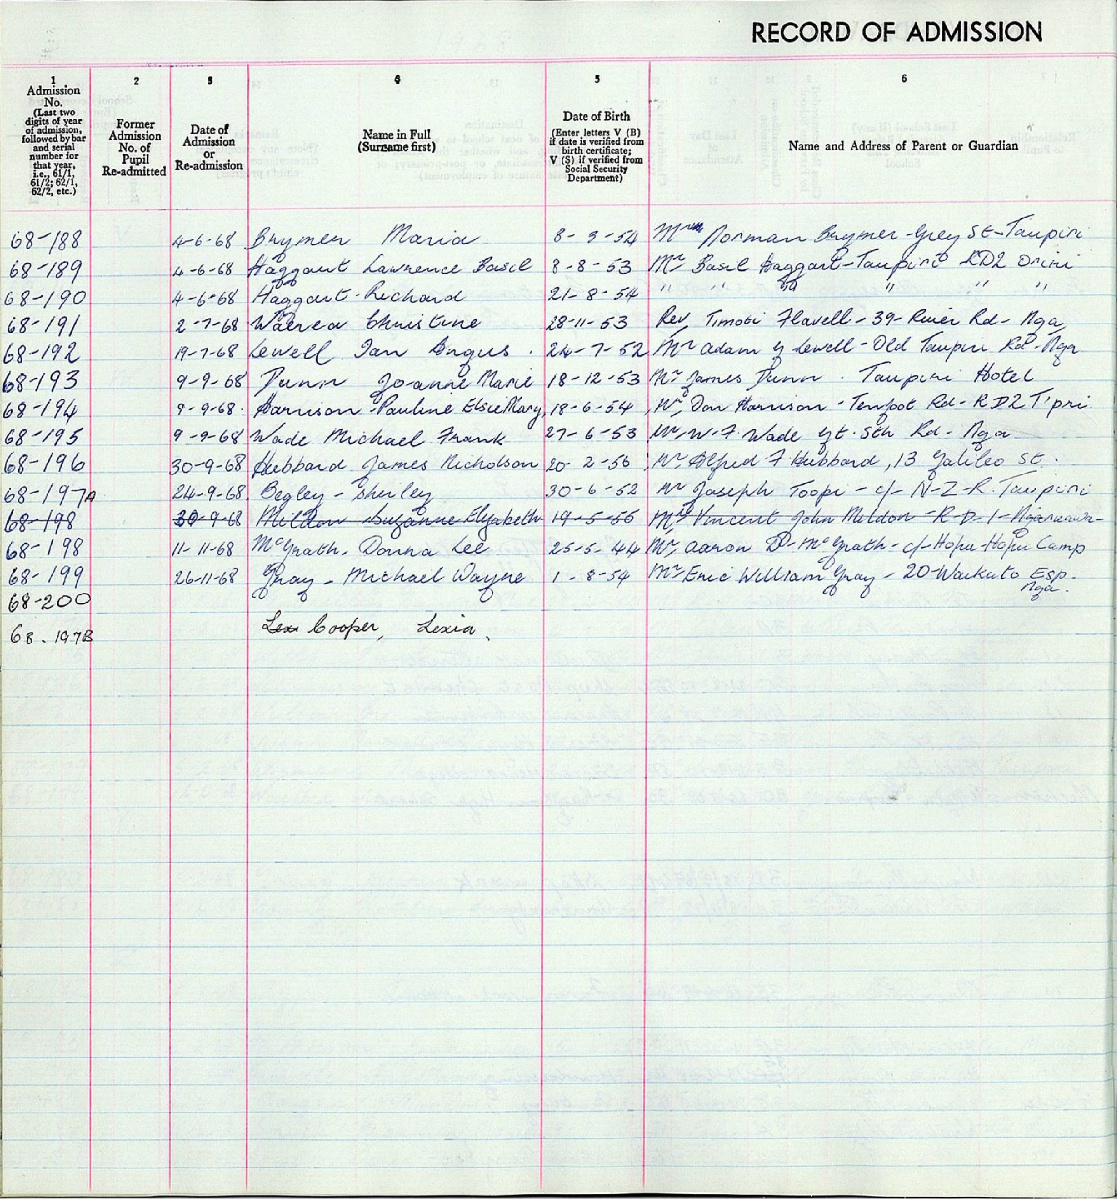 RECORD OF ADMISSION
1 2 3 4 5 6
Admission No. (Last two digits of year of admission, followed by bar and serial number for that year, i.e., 61/1, 61/2; 62/1, 62/2, etc.)
Former Admission No. of Pupil Re-admitted
Date of Admission or Re-admission
Name in Full (Surname first)
Date of Birth (Enter letters V (B) if date is verified from birth certificate; V (S) if verified from Social Security Department)
Name and Address of Parent or Guardian
68-188 4-6-68 Brymer Maria 8-9-54 Norman Brymer-Grey St-Taupiri
68-189 4-6-68 Haggart Lawrence Basil 8-8-53 Mr Basil Haggart-Taupiri RD2 Orini
68-190 4-6-68 Haggart-Richard 21-8-54 " " " " " "
68-191 2-7-68 Christine 28-11-53 Rev, Timoti Flavell-39-River Rd-Nga
68-192 19-7-68 Lewell Ian Angus. 24-7-52 Mr Adam Y Lewell-Old Taupiri Rd-Nga
68-193 9-9-68 Dunn Joanne Marie 18-12-53 Mr James Dunn. Taupiri Hotel
68-194 9-9-68. Harrison-Pauline Elsie Mary, 18-6-54 Mr, Don Harrison-Tenfoot Rd-RD2 T'piri
68-195 9-9-68 Wade Michael Frank 27-6-53 Mr, W.F. Wade Gt. Sth Rd-Nga
68-196 30-9-68 Hubbard James Nicholson 20-2-56 Mr, Alfred F Hubbard, 13 Galileo St.
68-197A 24-9-68 Begley-Shirley 30-6-52 Mr Joseph Toopi-c/- N-Z-R. Taupiri
68-198 30-9-68 Meldon-Suzanne Elizabeth 19-5-56 Vincent John Meldon-R-D-1-Ngaruawa-
68-198 11-11-68 McGrath. Donna Lee 25-5-44 Mr, Aaron D-McGrath-c/-Hopu-Hopu Camp
68-199 26-11-68 Gray-Michael Wayne 1-8-54 Mr Eric William Gray-20-Waikato Esp.
Nga.
68-200
68.197B Lex Cooper, Lexia.